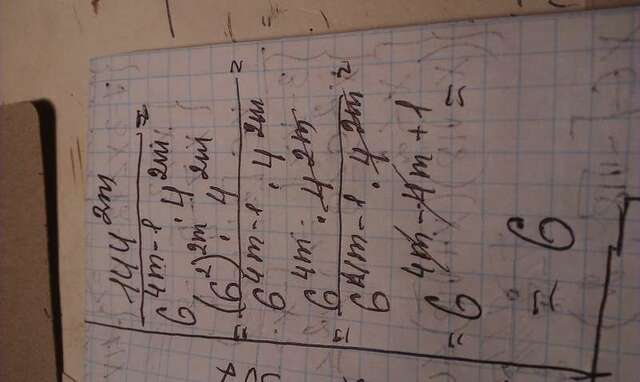 144^{2m}
6^{4m-1} · 4^{2m} =
(6^{2})^{2m} · 4^{2m}
= 6^{4m-1} · 4^{2m} =
6^{4m} · 4^{2m}
= 6^{4m-1} · 4^{2m} =
= 6^{4m-4m+1} =
= 6